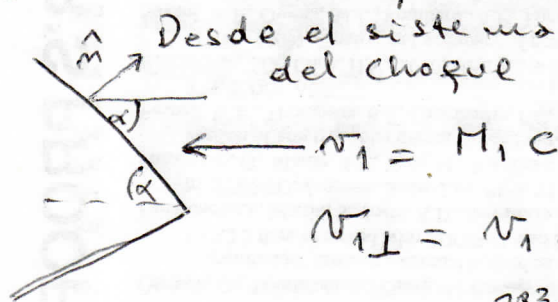 Desde el sistema
del choque
n̂
α
v₁ = M₁ C
α
v₁⊥ = v₁